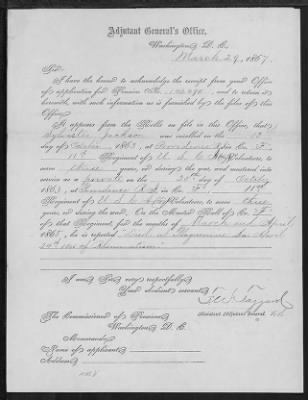 Adjutant General's Office,
Washington, D. C.
March 29, 1867.
Sir:
I have the honor to acknowledge the receipt from your Office
of application for Pension No. and to return it
herewith, with such information as is furnished by the files of this
Office.
It appears from the Rolls on file in this Office, that
Sylvester Jackson was enrolled on the
day of 1863, at Providence R.I. in Co. F,
11th Regiment of U. S. C. Volunteers, to
serve three years, or during the war, and mustered into
service as a private on the day of
1863, at Providence R.I. in Co. F, 11th
Regiment of U. S. C. Volunteers, to serve three
years, or during the war. On the Muster Roll of Co. F
of that Regiment, for the months of March and April,
1865, he is reported Died at Plaquemine La
I am, Sir, very respectfully,
Your obedient servant,
Assistant Adjutant General
The Commissioner of Pensions,
Washington, D. C.
Memoranda:
Name of applicant
Address